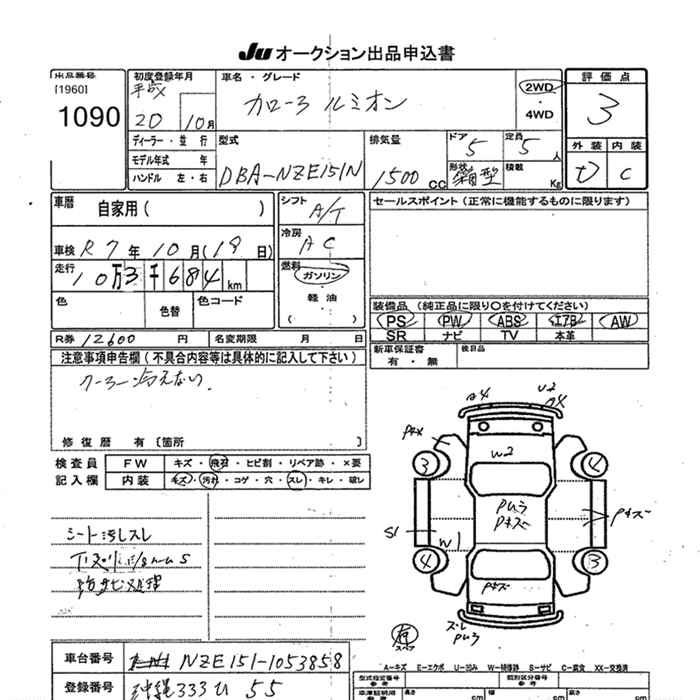 Ju オークション出品申込書
出品番号
[1960]
1090
初度登録年月
平成
20 10月
ディーラー・並行
モデル年式 年
ハンドル 左・右
車名・グレード
カローラ ルミオン
2WD
・
4WD
評価点
3
外装 内装
D C
型式
DBA-NZE151N
排気量
1500 CC
ドア
5
定員
5 人
形状
箱型
積載
Kg
車歴
自家用( )
車検 R7年10月(19日)
走行
10万3千684km
色
色替
色コード
シフト
A/T
冷房
AC
燃料
ガソリン
・
軽油
( )
セールスポイント(正常に機能するものに限ります)
装備品(純正品に限り○を付けてください)
PS PW ABS エアB AW
SR ナビ TV 本革
新車保証書
有・無
検目品
R券 12600 円
名変期限 月 日
注意事項申告欄(不具合内容等は具体的に記入して下さい)
クーラー冷えない
修復歴 有〔箇所
検査員
記入欄
FW キズ・飛石・ヒビ割・リペア跡・×要
内装 キズ・汚れ・コゲ・穴・スレ・キレ・破レ
シート汚しスレ
防サビ処理
A4
U2
W2
3
4
S1
W1
Pムラ
Pキズ
Pキズ
4
3
Pキズ
ズレ
Pムラ
有
スペア
A-キズ E-エクボ U-凹み W-補修跡 S-サビ C-腐食 XX-交換済
車台番号
NZE151-1053858
登録番号
沖縄333 U 55
型式指定番号
参考
類別区分番号
参考
長さ
cm
幅
cm
高さ
cm